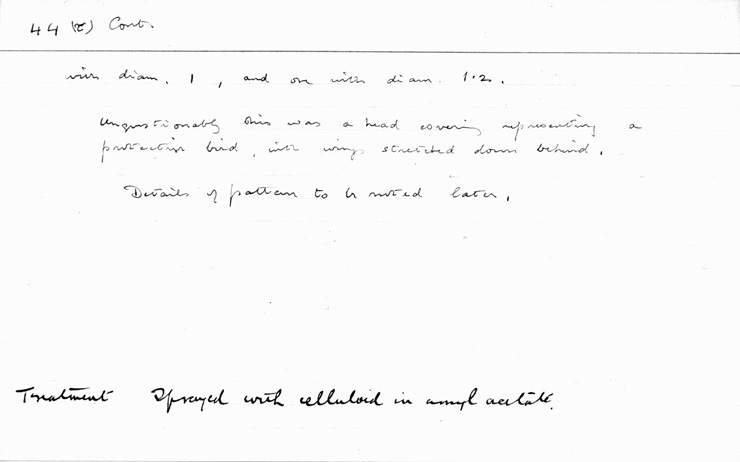 44 (t) Cont.
with diam. 1, and one with diam. 1.2.
Unquestionably this was a head covering representing a
protecting bird, with wings stretched down behind.
Details of pattern to be noted later.
Treatment Sprayed with celluloid in amyl acetate.